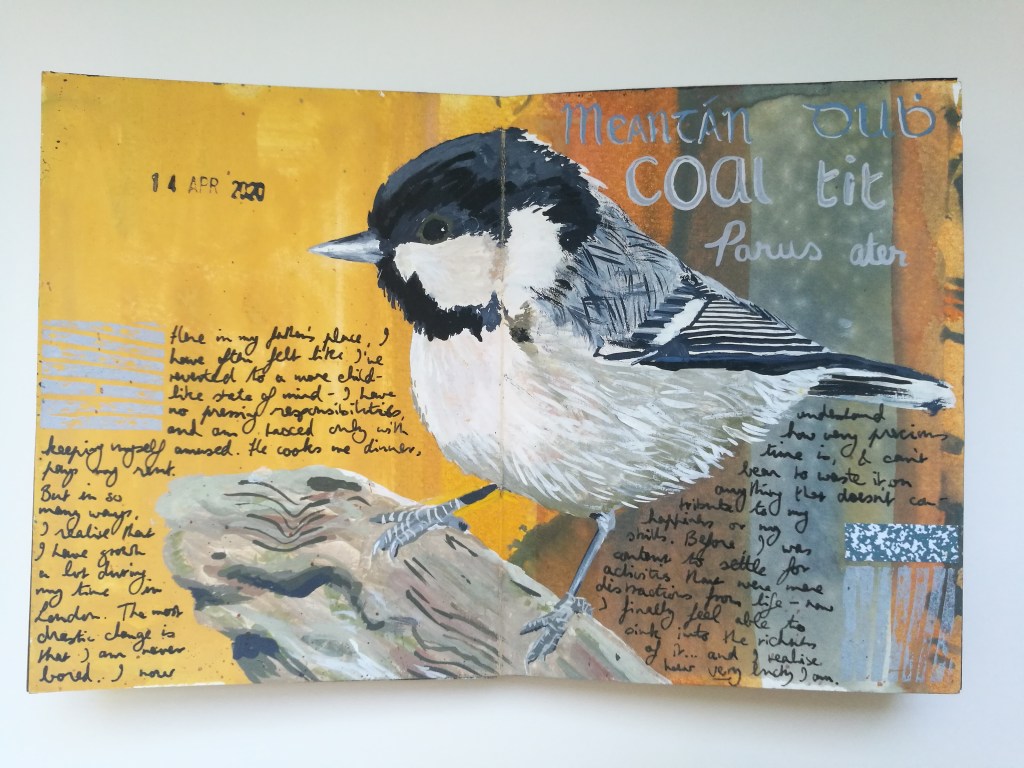 14 APR 2020
Meantán Duḃ
Coal tit
Parus ater
Here in my father's place, I
have often felt like I've
reverted to a more child-
like state of mind - I have
no pressing responsibilities,
and am tasked only with
keeping myself amused. He cooks me dinner,
pays my rent.
But in so
many ways,
I realise that
I have grown
a lot during
my time in
London. The most
drastic change is
that I am never
bored. I now
understand
how very precious
time is, & can't
bear to waste it on
anything that doesn't con-
tribute to my
happiness or my
skills. Before I was
content to settle for
activities that were mere
distractions from life - now
I finally feel able to
sink into the richness
of it... and I realise
how very lucky I am.